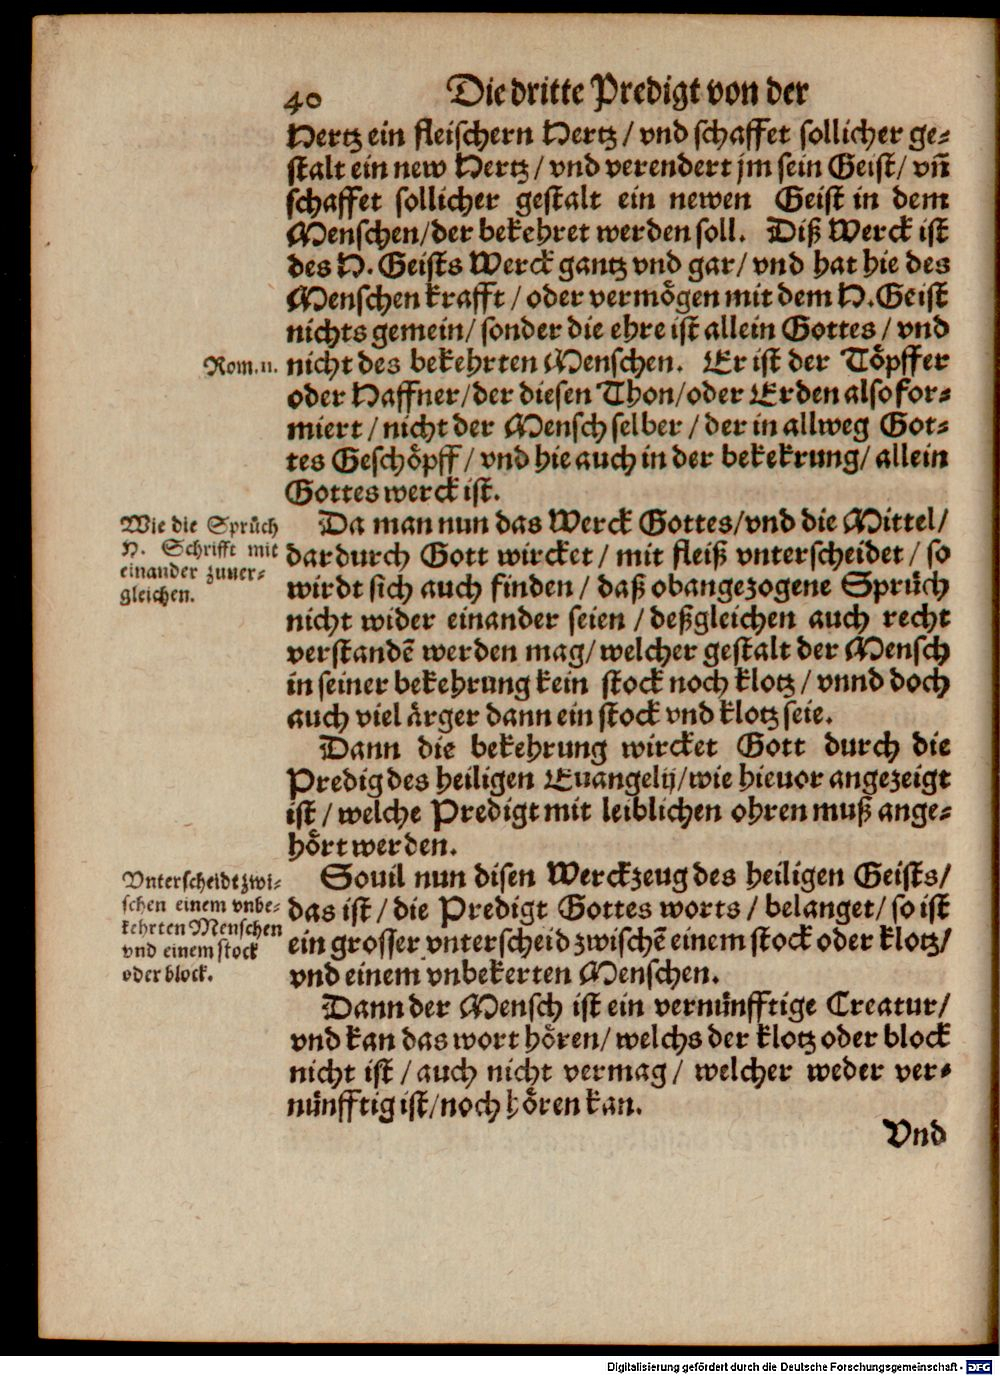 40 Die dritte Predigt von der
Hertz ein fleischern Hertz / vnd schaffet sollicher ge-
stalt ein new Hertz / vnd verendert jm sein Geist / vñ
schaffet sollicher gestalt ein newen Geist in dem
Menschen / der bekehret werden soll. Diß Werck ist
des H. Geists Werck gantz vnd gar / vnd hat hie des
Menschen krafft / oder vermögen mit dem H. Geist
nichts gemein / sonder die ehre ist allein Gottes / vnd
Rom. 11.
nicht des bekehrten Menschen. Er ist der Töpffer
oder Haffner / der diesen Thon / oder Erden also for-
miert / nicht der Mensch selber / der in allweg Got-
tes Geschöpff / vnd hie auch in der bekekrung / allein
Gottes werck ist.
Wie die Sprüch
H. Schrifft mit
einander zuuer-
gleichen.
Da man nun das Werck Gottes / vnd die Mittel /
dardurch Gott wircket / mit fleiß vnterscheidet / so
wirdt sich auch finden / daß obangezogene Sprüch
nicht wider einander seien / deßgleichen auch recht
verstandē werden mag / welcher gestalt der Mensch
in seiner bekehrung kein stock noch klotz / vnnd doch
auch viel ärger dann ein stock vnd klotz seie.
Dann die bekehrung wircket Gott durch die
Predig des heiligen Euangelij / wie hieuor angezeigt
ist / welche Predigt mit leiblichen ohren muß ange-
hört werden.
Vnterscheidt zwi-
schen einem vnbe-
kehrten Menschen
vnd einem stock
oder block.
Souil nun disen Werckzeug des heiligen Geists /
das ist / die Predigt Gottes worts / belanget / so ist
ein grosser vnterscheid zwischē einem stock oder klotz /
vnd einem vnbekerten Menschen.
Dann der Mensch ist ein vernünfftige Creatur /
vnd kan das wort hören / welchs der klotz oder block
nicht ist / auch nicht vermag / welcher weder ver-
nünfftig ist / noch hören kan.
Vnd
Digitalisierung gefördert durch die Deutsche Forschungsgemeinschaft - DFG